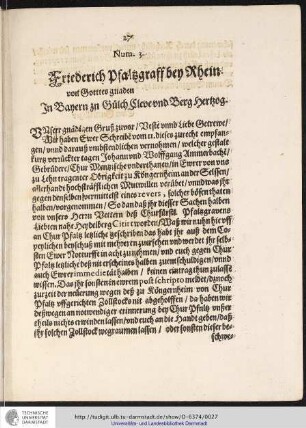 27
Num. 3.
Friederich Pfaltzgraff bey Rhein
von Gottes gnaden
In Bayern zu Gülch Cleve vnd Berg Hertzog.
VNser gnädigen Gruß zuvor / Veste vnnd Liebe Getrewe /
Wir haben Ewer Schreiben vom dieses zu recht empfan-
gen / vnnd darauß vmbstendtlichen vernohmen / welcher gestalt
kurtz verrückter tagen Johann vnnd Wolffgang
Gebrüder / Chur Mentzische vnderthanen / in Ewrer von vns
zu Lehn tragenter Obrigkeit zu Köngernheim an der Selssen /
allerhandt hochsträfflichen Mutwillen verübet / vnnd was ihr
gegen denselben vermittelst eins revers, solcher bösen thaten
halben / vorgenommen / So dann daß ihr dieser Sachen halben
von vnsers Herrn Vettern deß Churfürstl. Pfaltzgravens
Liebden nahe Heydelberg Citirt worden / Waß wir nuhn hierauff
an Chur Pfaltz letzliche geschrieben das habt ihr auß dem Co-
peylichen beyschluß mit mehrem zu ersehen vnnd wer det ihr selb-
sten Ewer Notturfft in acht zunehmen / vnd euch gegen Chur-
Pfaltz letzliche deß nit erscheinens halben zu entschuldigen / vnnd
auch Ewer immedietät halben / keinen eintrag thun zulassen
wissen. Das ihr sonsten in ewrem postscripto meldet / daß noch
zur zeit der newerung wegen deß zu Köngernheim von Chur
Pfaltz vffgerichten Zollstocks nit abgeholffen / da haben wir
deßwegen an notwendiger erinnerung bey Chur Pfaltz vnsers
theils nichts erwinden lassen / vnd euch an die Handt geben / daß
ihr solchen Zollstock wegraumen lassen / oder sonsten dieser be-
schwe-
TECHNISCHE
UNIVERSITÄT
DARMSTADT
http://tudigit.ulb.tu-darmstadt.de/show/O-6374/0027
Universitäts- und Landesbibliothek Darmstadt